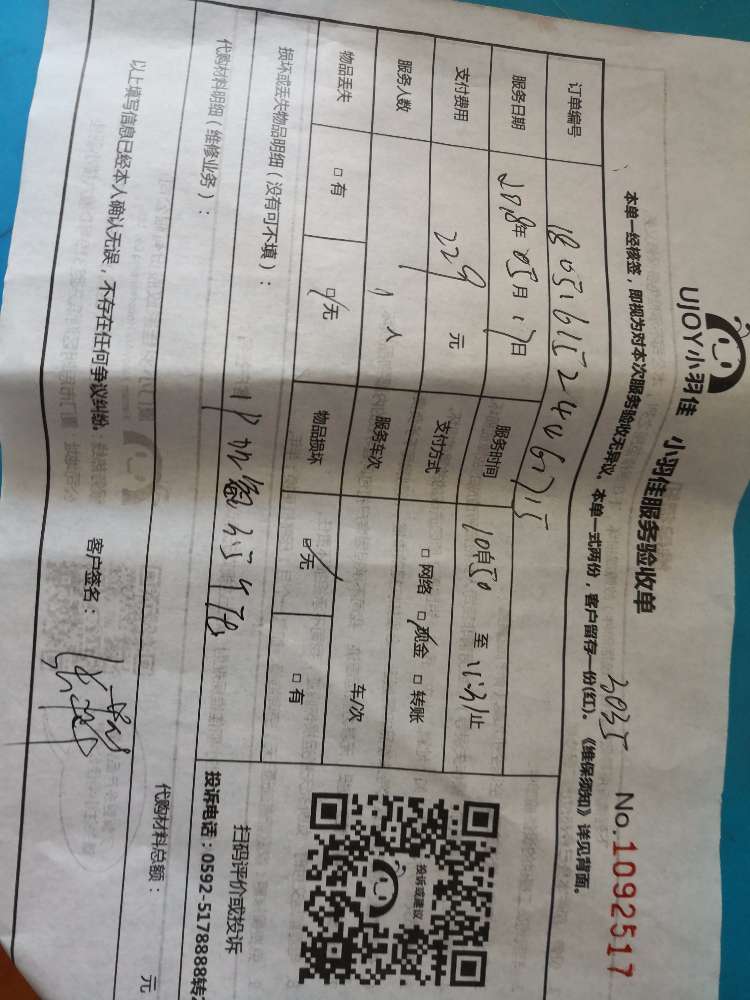 UJOY小羽佳 小羽佳服务验收单
3035 No.1092517
本单一经核签，即视为对本次服务验收无异议。本单一式两份，客户留存一份(红)。《维保须知》详见背面。
订单编号
服务日期 2018年05月17日 服务时间 至 止
支付费用 229 元 支付方式 □网络 □现金 □转账
服务人数 1 人 服务车次 车/次
物品丢失 □有 □无 物品损坏 □无 □有
损坏或丢失物品明细（没有可不填）：
代购材料明细（维修业务）：
代购材料总额： 元
以上填写信息已经本人确认无误，不存在任何争议纠纷。
客户签名：
投诉或建议
扫码评价或投诉
投诉电话：0592-5178888转